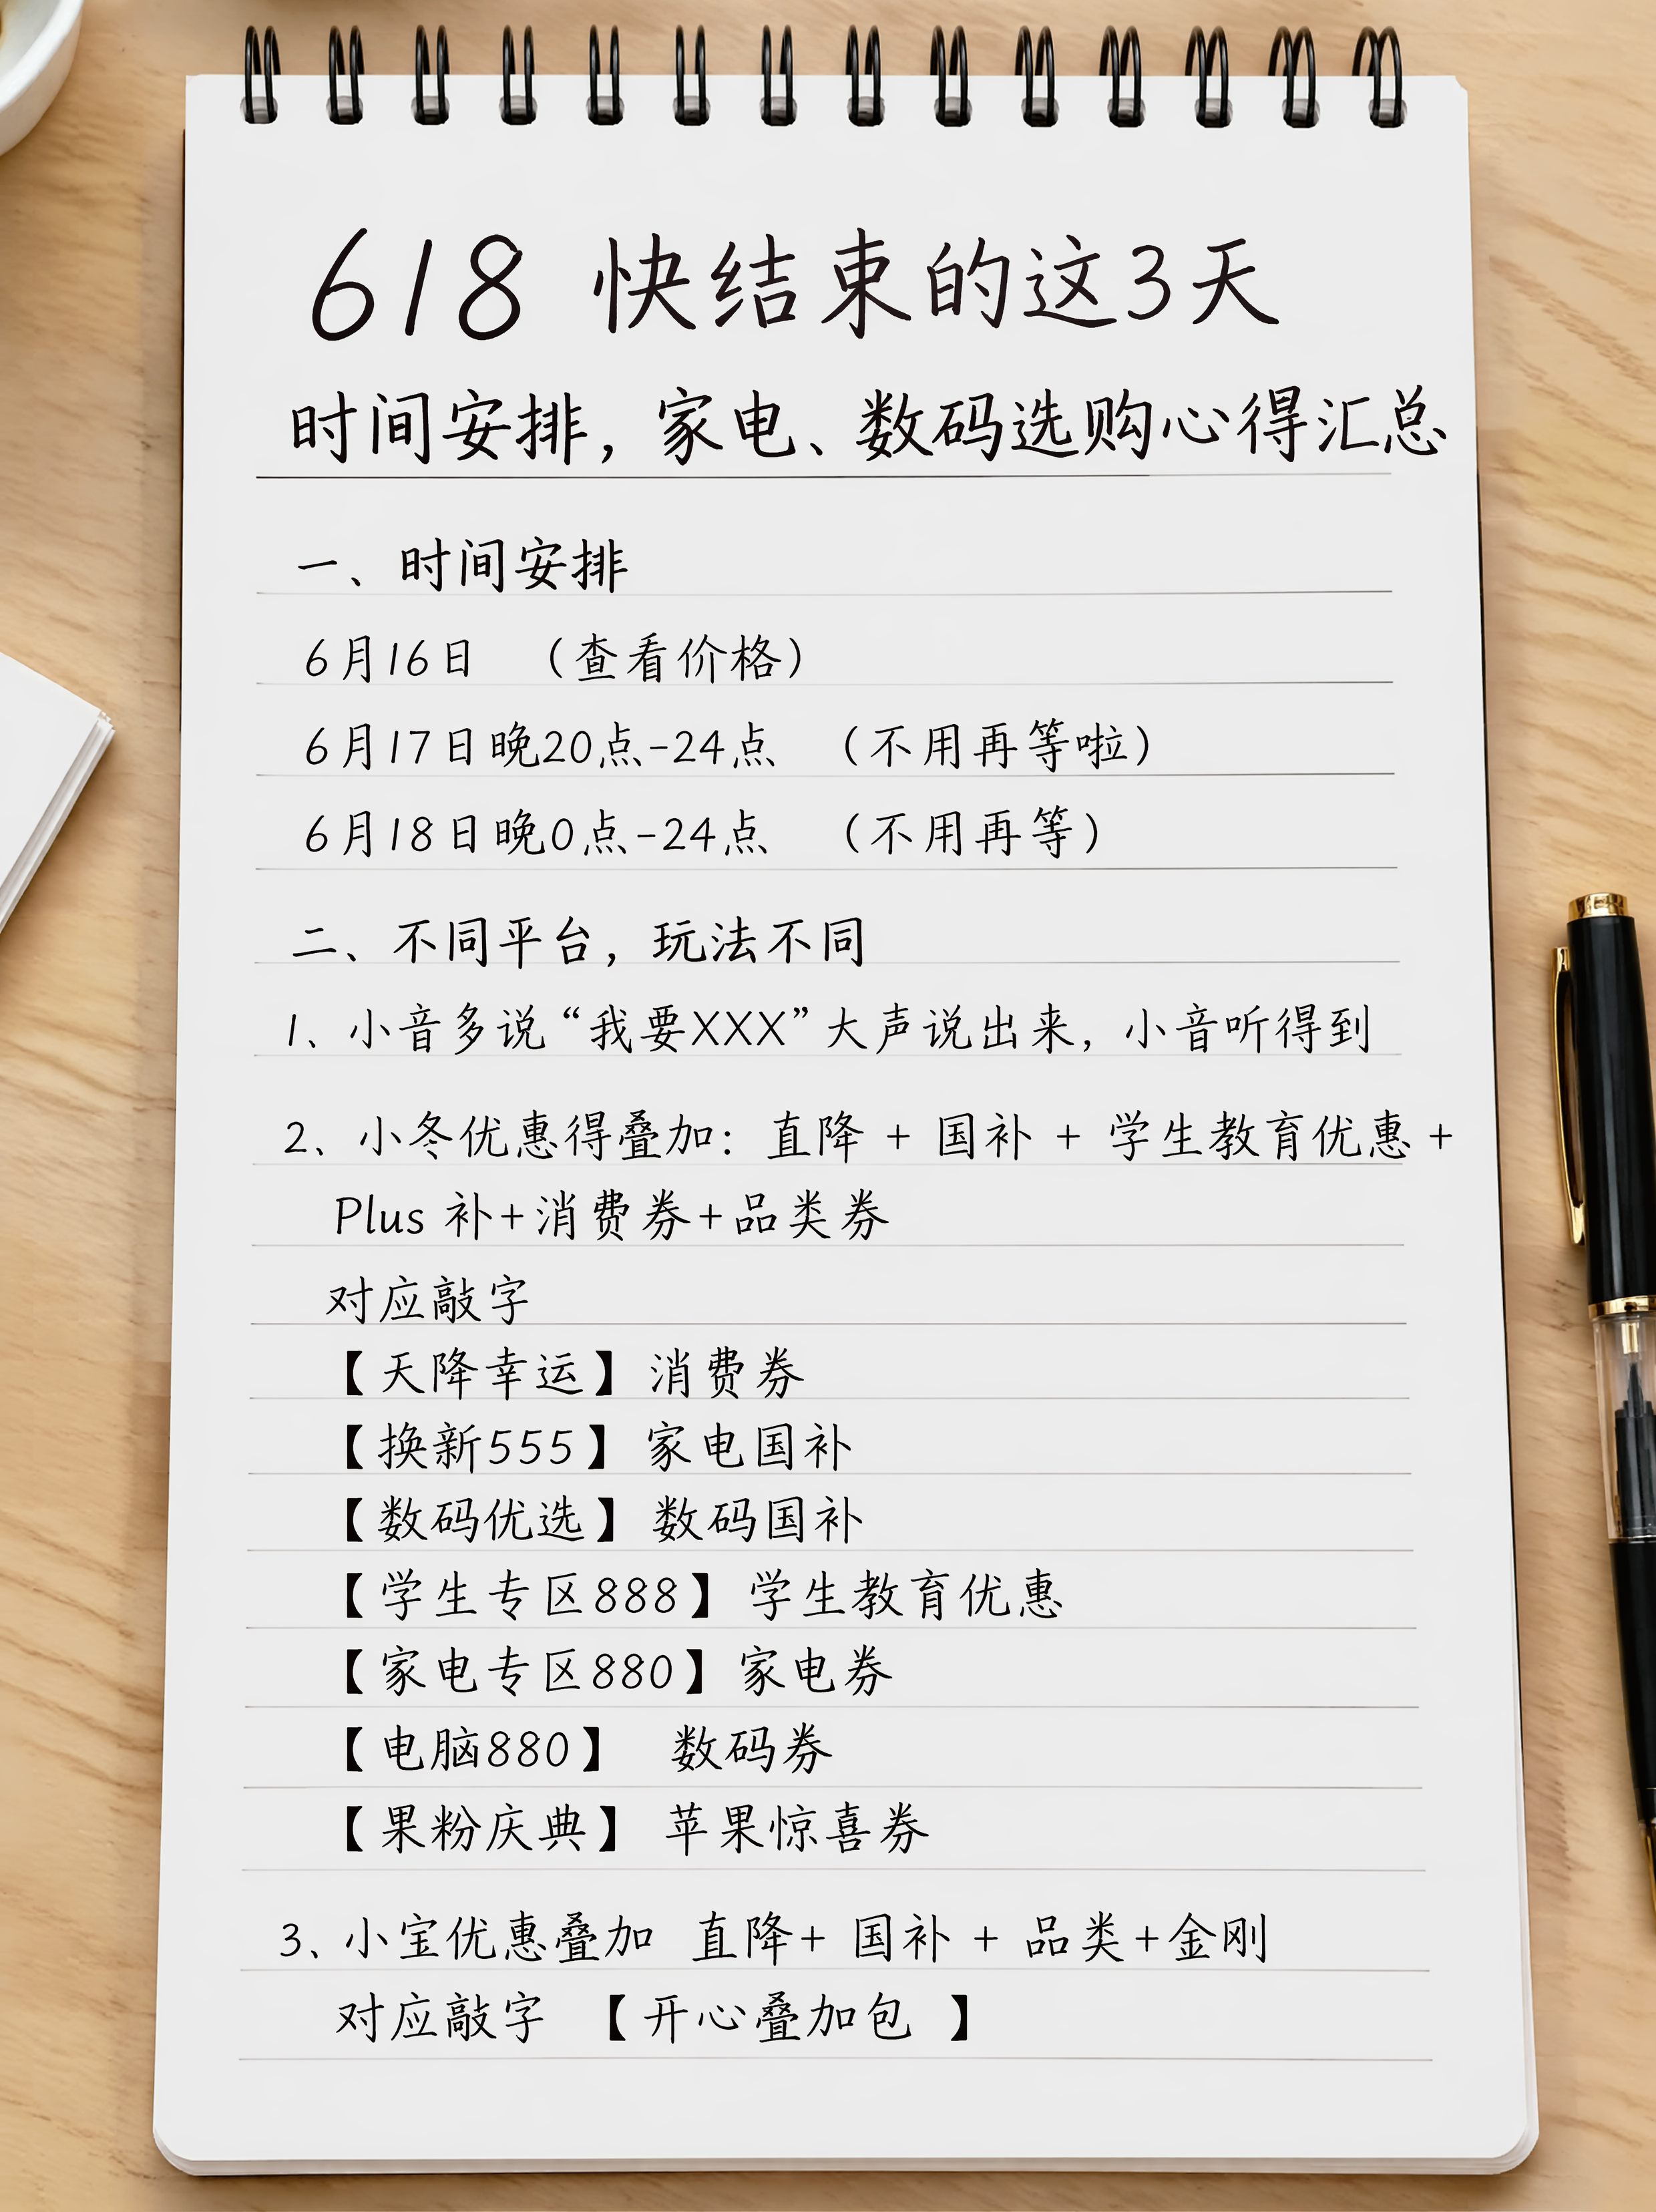 618 快结束的这3天
时间安排，家电、数码选购心得汇总
一、时间安排
6月16日 （查看价格）
6月17日晚20点-24点 （不用再等啦）
6月18日晚0点-24点 （不用再等）
二、不同平台，玩法不同
1、小音多说“我要XXX”大声说出来，小音听得到
2、小冬优惠得叠加：直降 + 国补 + 学生教育优惠 +
Plus 补+消费券+品类券
对应敲字
【天降幸运】消费券
【换新555】家电国补
【数码优选】数码国补
【学生专区888】学生教育优惠
【家电专区880】家电券
【电脑880】 数码券
【果粉庆典】苹果惊喜券
3、小宝优惠叠加 直降+ 国补 + 品类+金刚
对应敲字 【开心叠加包 】